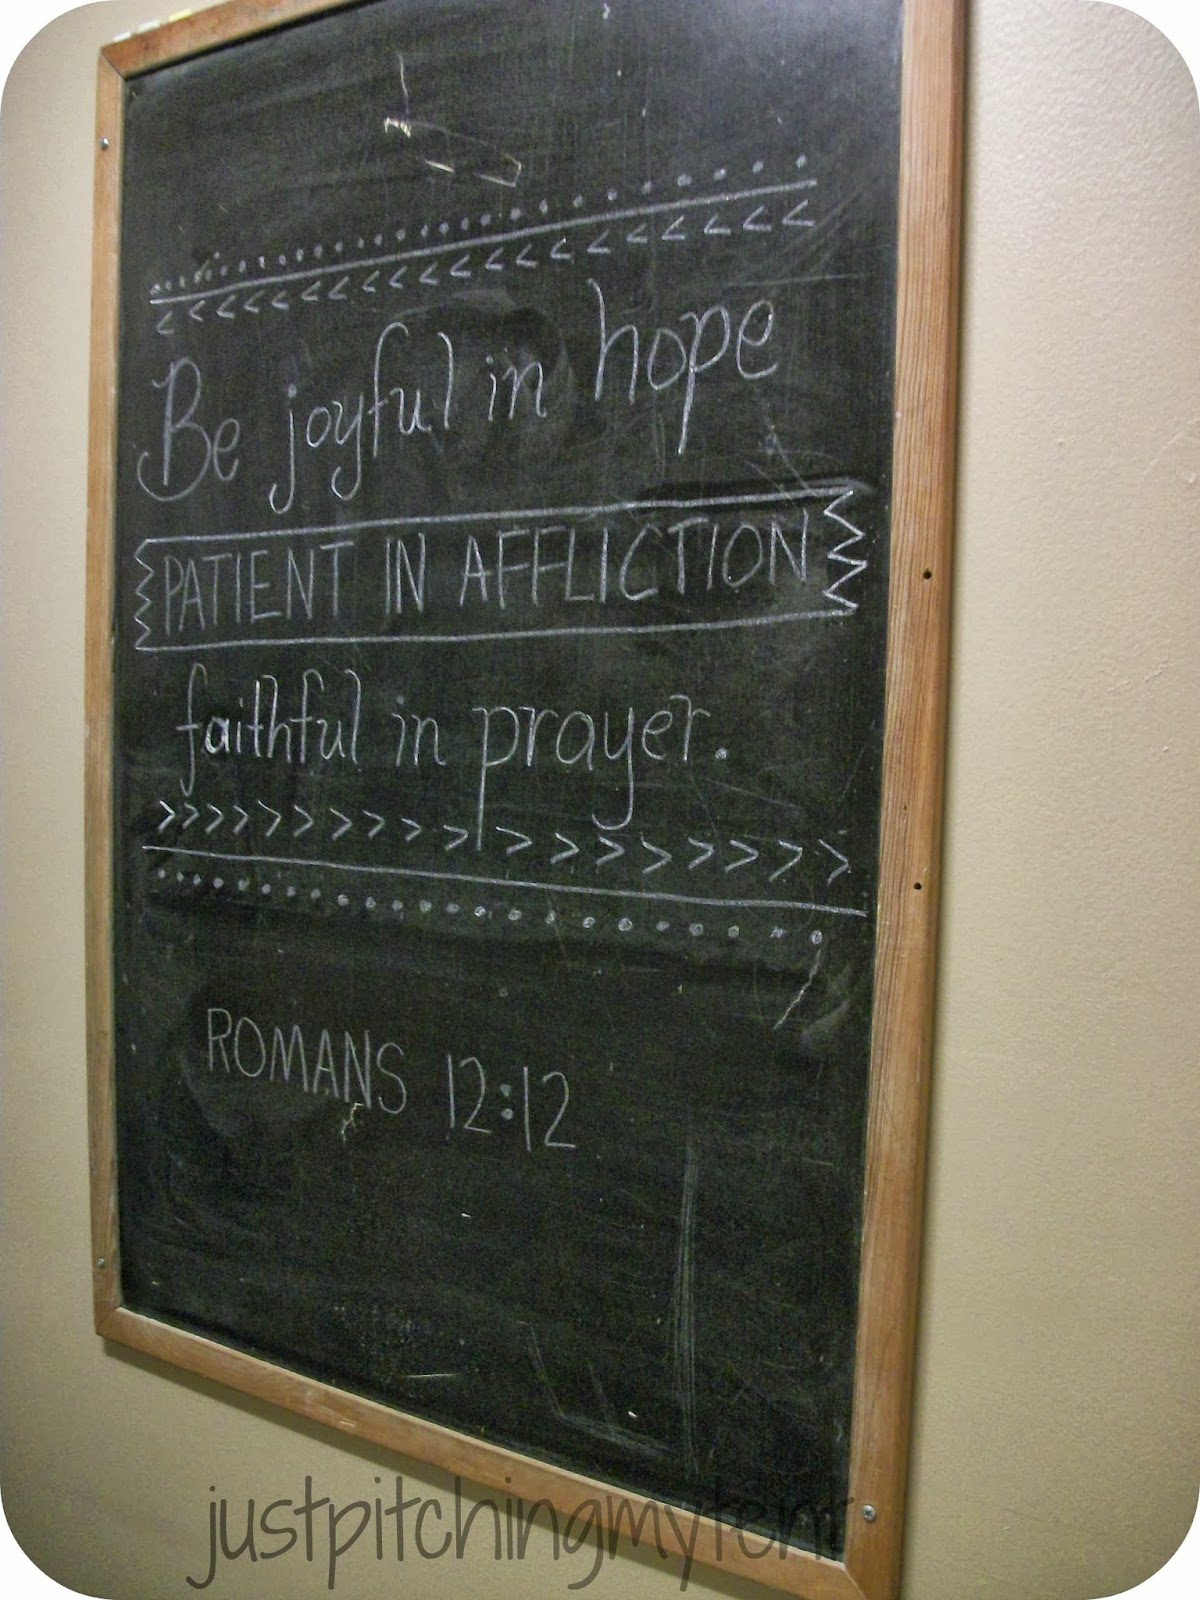 Be joyful in hope
PATIENT IN AFFLICTION
faithful in prayer.
ROMANS 12:12
justpitchingmytent